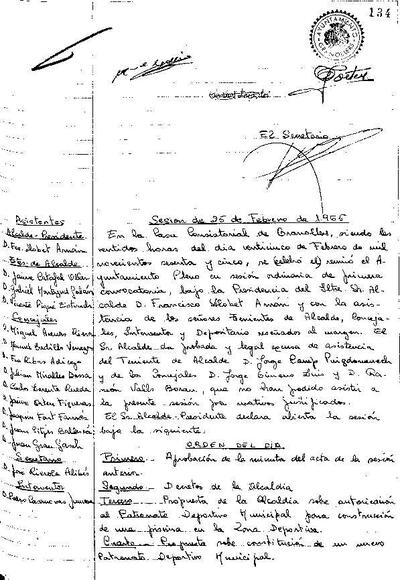 134
AYUNTAMIENTO
El Secretario
Sesion de 25 de Febrero de 1965
En la Casa Consistorial de Granollers, siendo las
veintidos horas del dia veinticinco de Febrero de mil
novecientos sesenta y cinco, se (celebró el) reunió el A-
yuntamiento Pleno en sesión ordinaria de primera
convocatoria, bajo la Presidencia del Iltre. Sr. Al-
calde D. Francisco Llobet Arnán y con la asis-
tencia de los señores Tenientes de Alcalde, Conceja-
les, Interventor y Depositario reseñados al margen. El
Sr. Alcalde da probada y legal excusa de asistencia
del Teniente de Alcalde D. Jorge Camp Puigdomenech
y de los Concejales D. Jorge Luis y D. Ra-
món Valls Borau, que no han podido asistir a
la presente sesión por motivos justificados.
El Sr. Alcalde-Presidente declara abierta la sesión
bajo la siguiente.
ORDEN DEL DIA
Primero.- Aprobación de la minuta del acta de la sesión
anterior.
Segundo.- Decretos de la Alcaldia
Tercero.- Propuesta de la Alcaldia sobre autorización
al Patronato Deportivo Municipal para construcción
de una piscina en la Zona Deportiva.
Cuarto.- Propuesta sobre constitución de un nuevo
Patronato Deportivo Municipal.
Asistentes
Alcalde-Presidente
D. Fco. Llobet Arnán
Ttes. de Alcalde
D. Jaime
D. Gabriel
D. Vicente Piqué
Concejales
D. Miguel Arenas
D. Manuel Bedilla
D. Fco. Ribas
D. Julian Miralles
D. Carlos Lorente Rueda
D. Jaime Orteu Figueras
D. Joaquin Font Farnós
D. Juan Pitjer
D. Juan Grau Garih
Secretario
D. José Rierola Alibés
Interventor
D. Pedro Casanovas